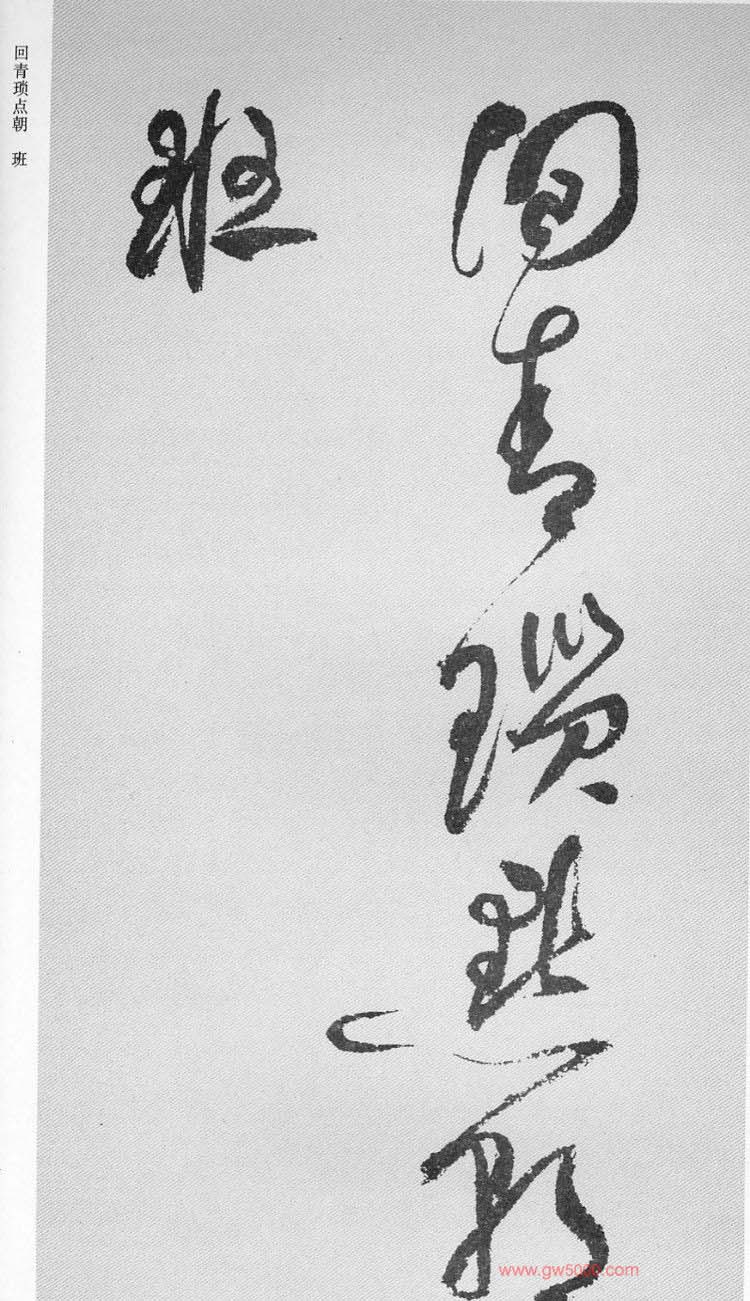 回青瑣點朝
班
回青琐点朝 班
www.gw5000.com